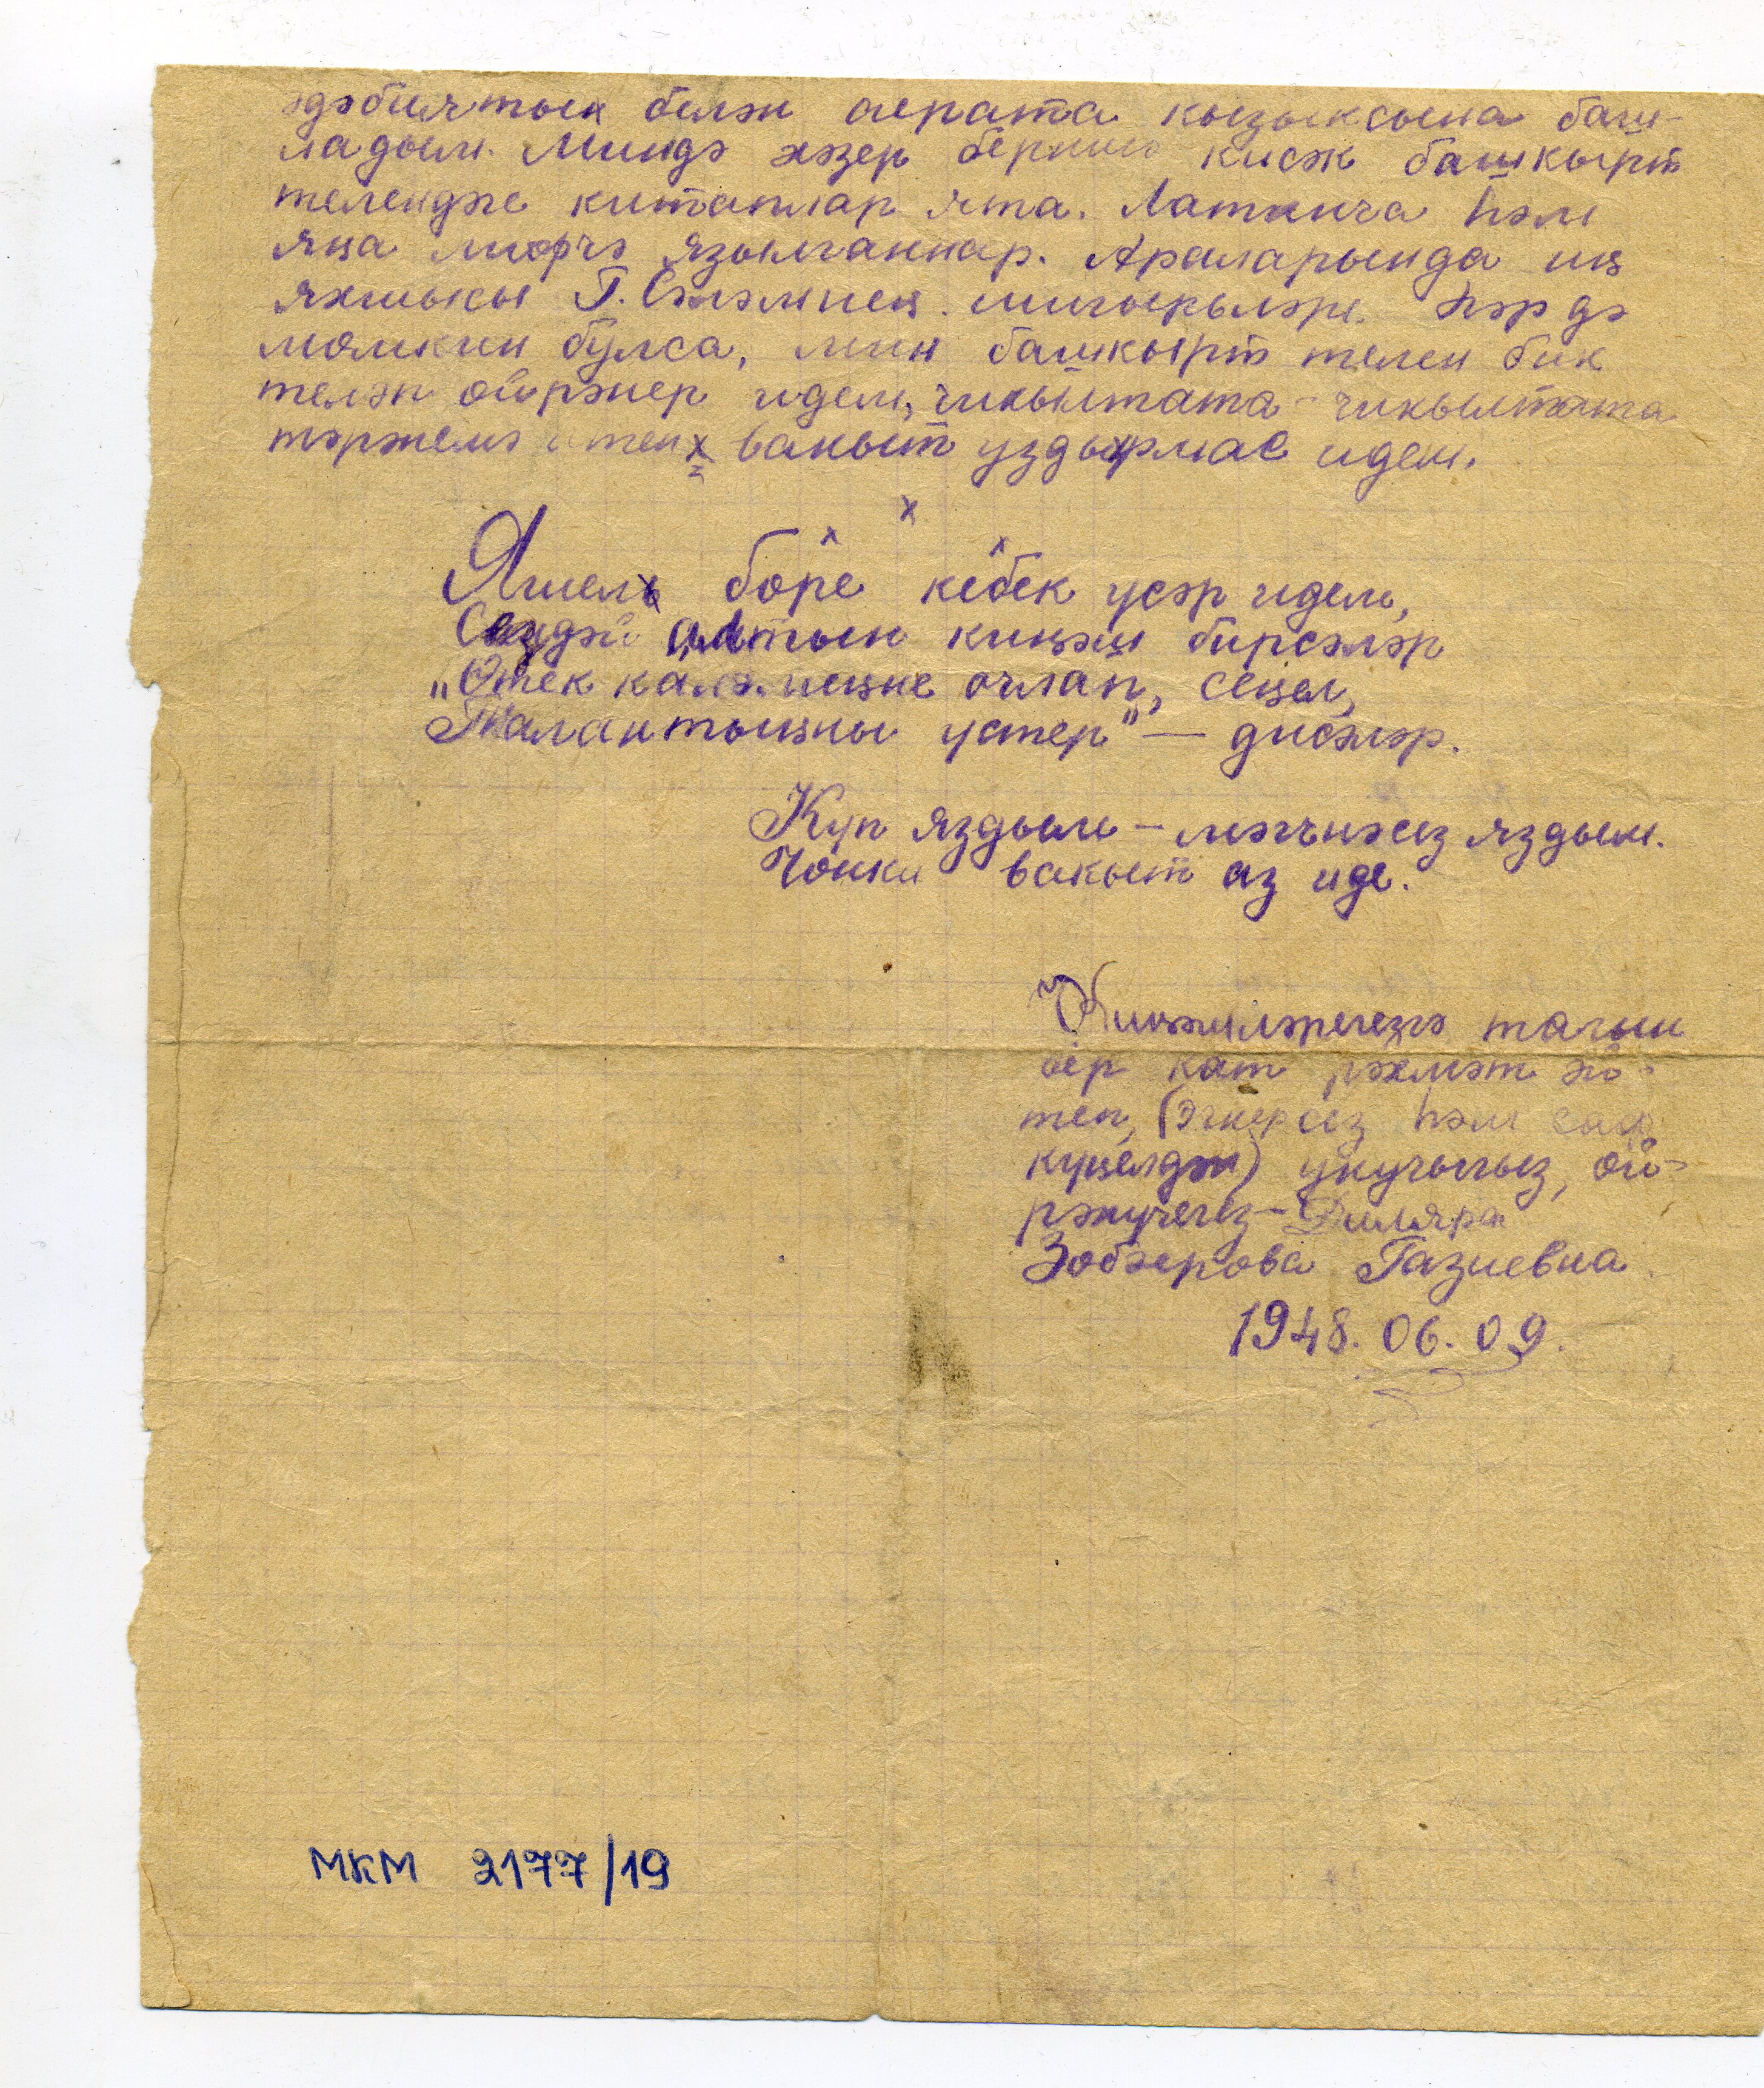 әдәбиятын белән аерата кызыксына баш-
ладым. Миндә хәзер берничә кисәк башкырт
телендәге китаплар ята. Латинча һәм
яңа имләчә язылганнар. Араларында иң
яхшысы Г. Сәләмнең шигырьләре. Һәр дә
мөмкин булса, мин башкырт телен бик
теләп өйрәнер идем, чикылтата-чикылтата
тәрҗемә итеп вакыт уздырмас идем.
х х х
Яшел бөре кебек үсәр идем,
Сездәй алтын киңәш бирсәләр
„Үтек каләмеңне очлап, сеңел,
Талантыңны үстер" — дисәләр.
Күп яздым – мәгънәсез яздым.
Чөнки вакыт аз иде.
Киңәшләрегезгә тагын
бер кат рәхмәт әй-
теп, (эчкерсез һәм саф
күңелдән) укучыгыз, өй-
рәнүчегез – Диляра
Зөбәерова Газиевна
1948. 06. 09.
МКМ 2177/19